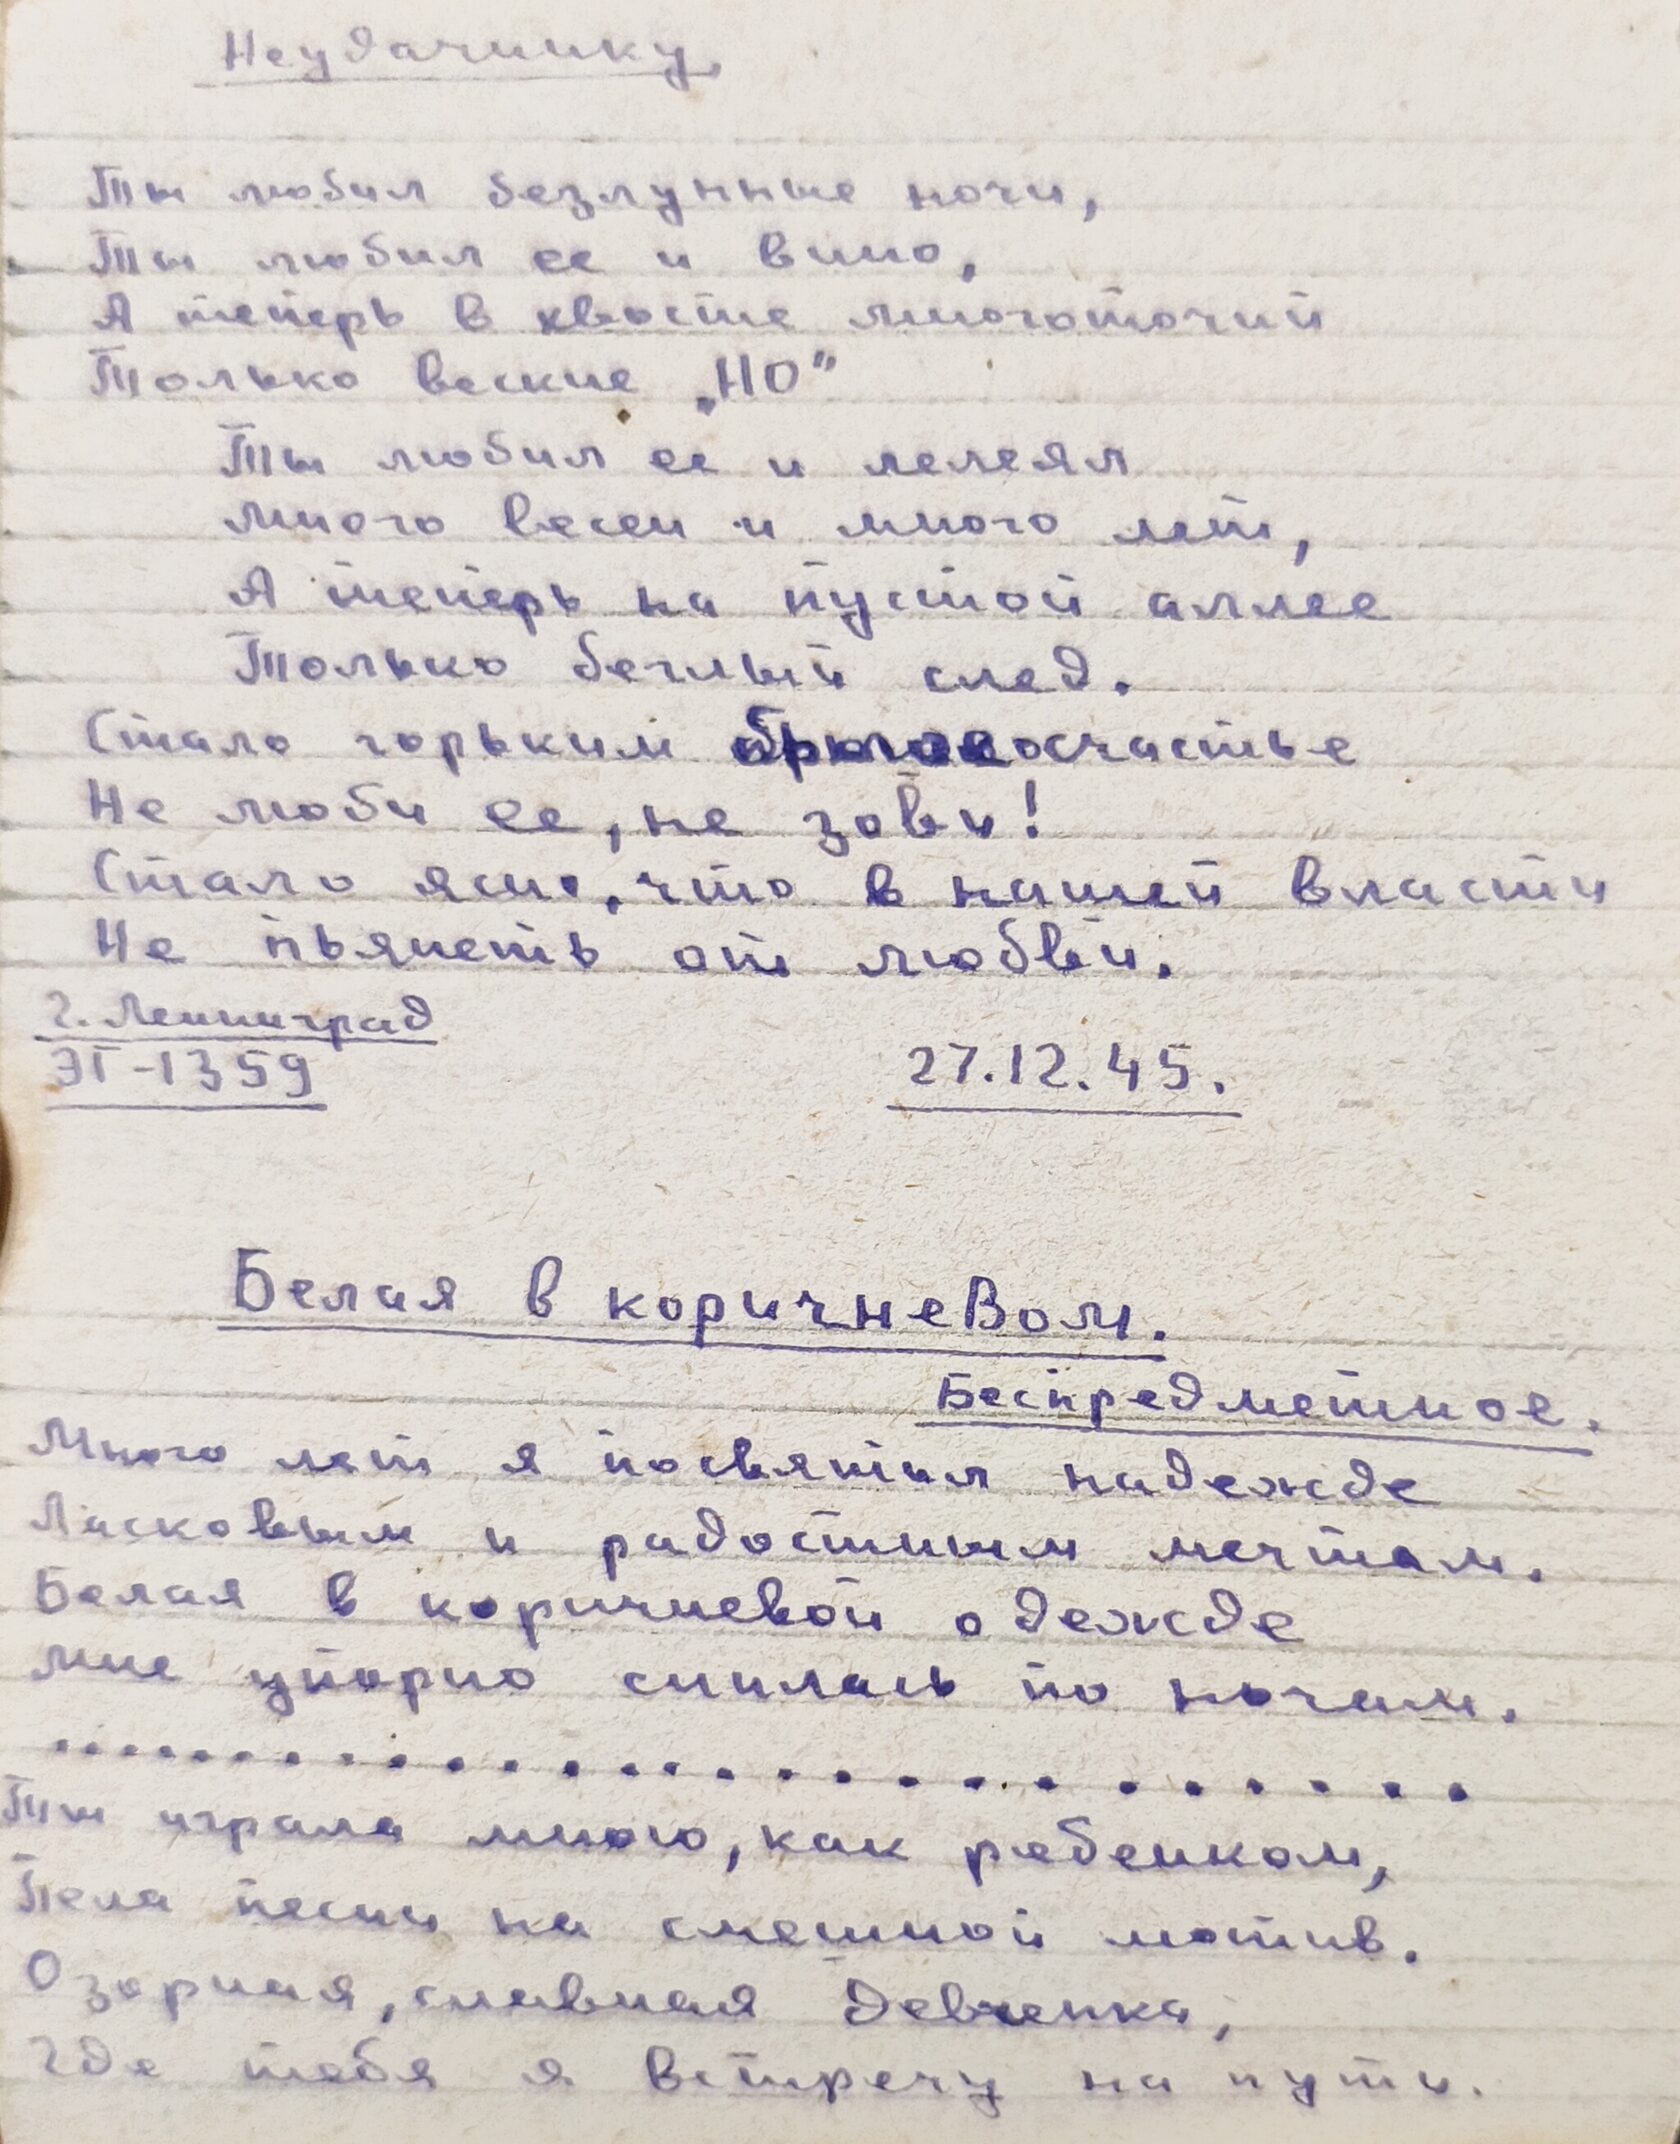 Неудачнику.
Ты любил безлунные ночи,
Ты любил ее и вино,
А теперь в хвосте многоточий
Только веские „НО"
Ты любил ее и лелеял
Много весен и много лет,
А теперь на пустой аллее
Только беглый след.
Стало горьким счастье
Не люби ее, не зови!
Стало ясно, что в нашей власти
Не пьянеть от любви.
г. Ленинград
ЭГ-1359
27.12.45.
Белая в коричневом.
Беспредметное.
Много лет я посвятил надежде
Ласковым и радостным мечтам.
Белая в коричневой одежде
Мне упорно снилась по ночам.
. . . . . . . . . . . . . . . . . . . . . .
Ты играла мною, как ребенком,
Пела песни на смешной мотив.
Озорная, славная девченка,
Где тебя я встречу на пути.